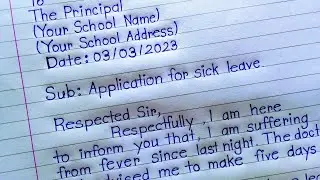 To
The Principal
(Your School Name)
(Your School Address)
Date: 03/03/2023
Sub: Application for sick leave
Respected Sir,
Respectfully, I am here
to inform you that, I am suffering
from fever since last night. The doct
me to make five days